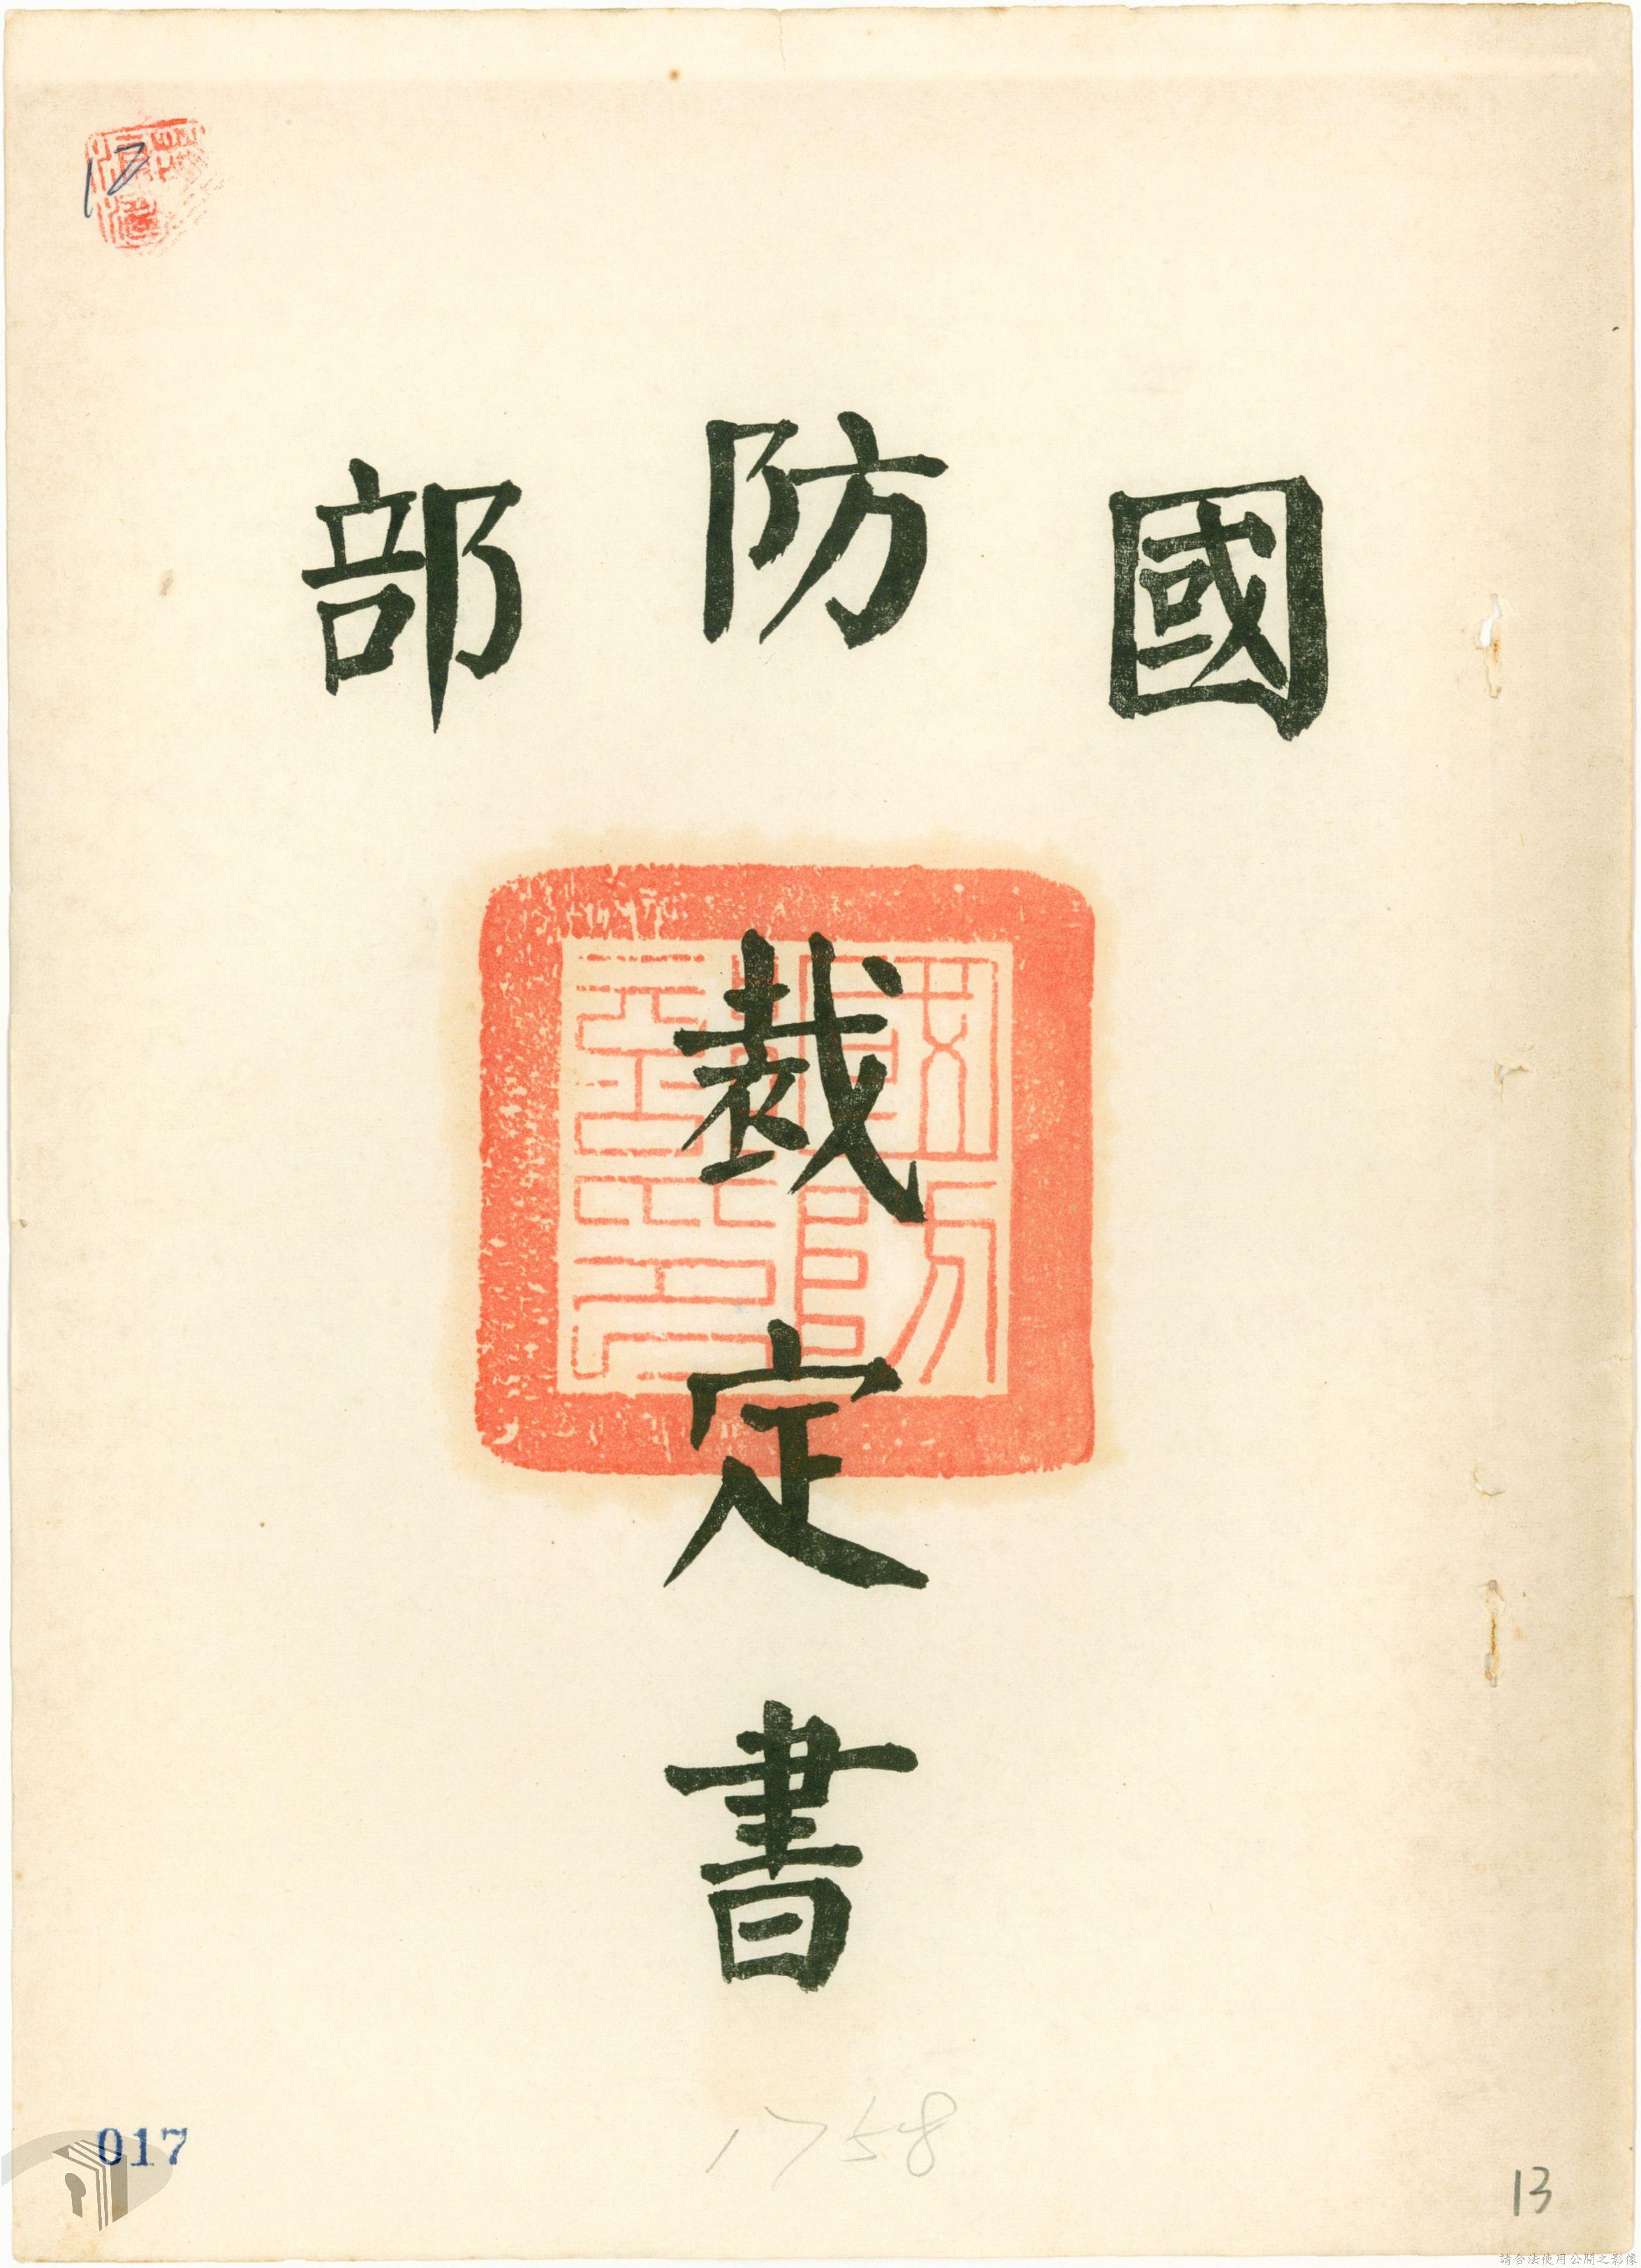 國防部
裁定書
17
1758
017
13
請合法使用公開之影像